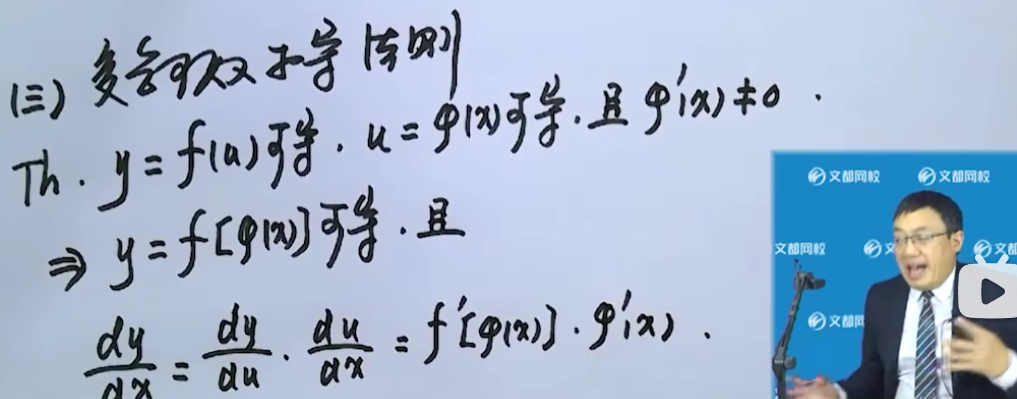 (三) 复合函数求导法则
Th. y = f(u)可导. u = φ(x)可导. 且 φ'(x) ≠ 0.
⇒ y = f[φ(x)]可导. 且
dy/dx = dy/du · du/dx = f'[φ(x)] · φ'(x).
文都网校 文都网校
文都网校 文都
文都网